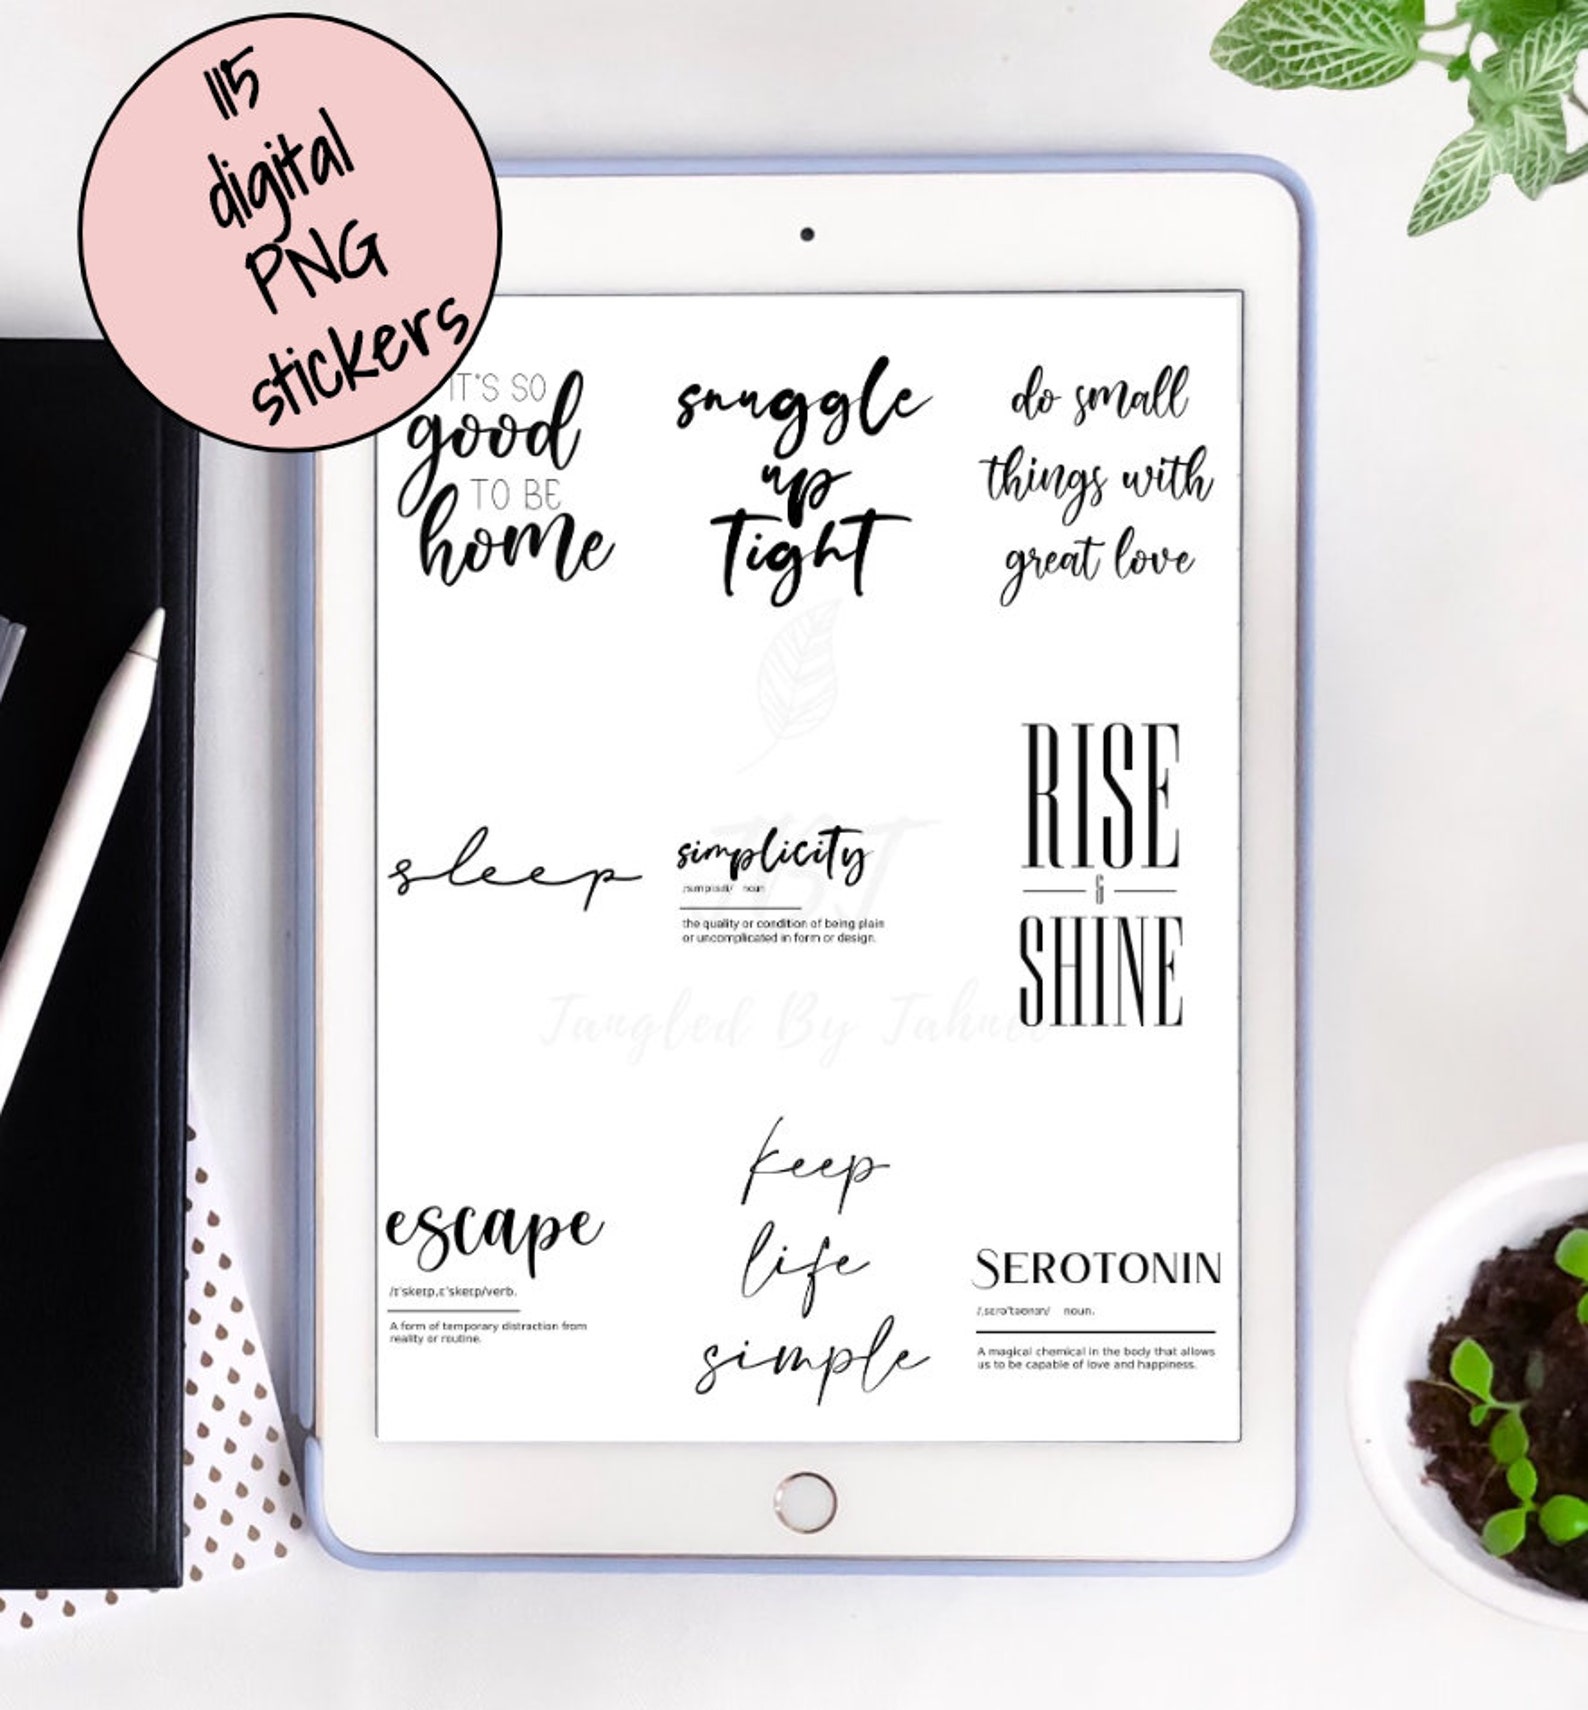 115
digital
PNG
stickers
IT'S SO
good
TO BE
home
snuggle
up
Tight
do small
things with
great love
sleep
simplicity
noun
the quality or condition of being plain
or uncomplicated in form or design.
RISE
&
SHINE
TBT
Tangled By Tahnee
escape
/ɪˈskeɪp,ɛˈskeɪp/verb.
A form of temporary distraction from
reality or routine.
keep
life
simple
SEROTONIN
noun.
A magical chemical in the body that allows
us to be capable of love and happiness.